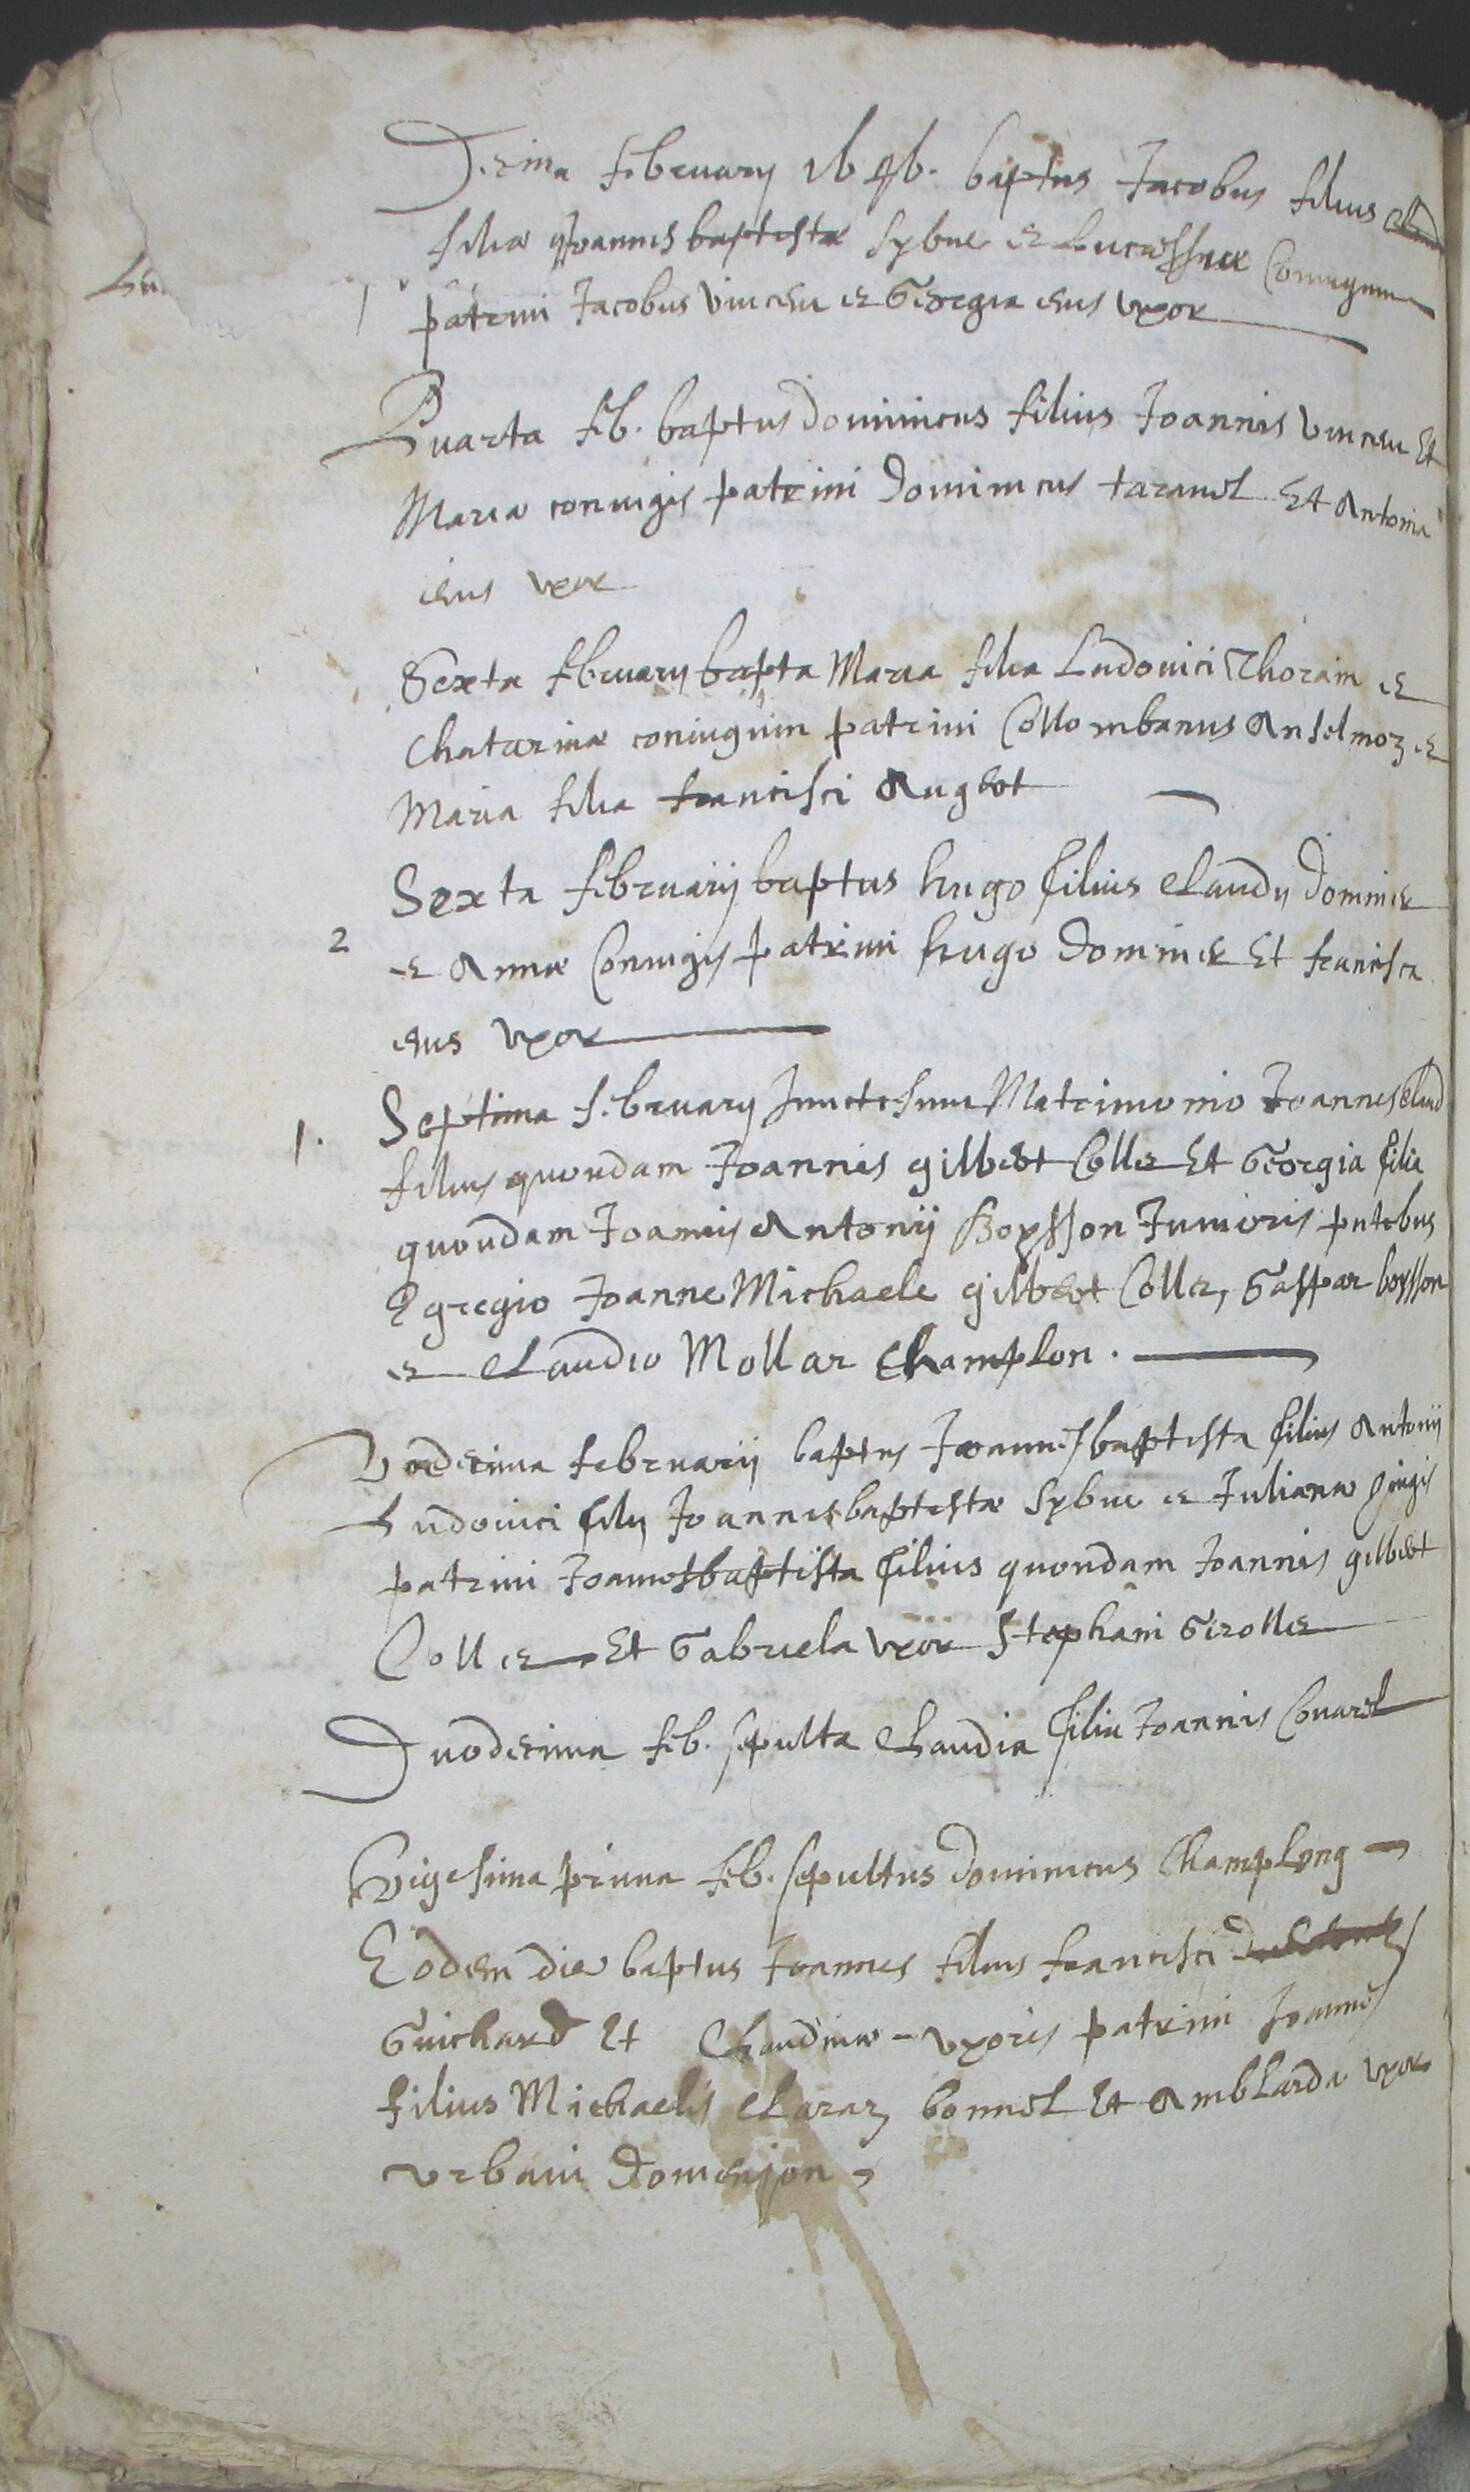 Decima february baptus Jacobus filius
filiæ Joannis baptistæ Sybue et Coniugum
patrini Jacobus Vincen et Georgia eius uxor
Quarta feb. baptus Dominicus filius Joannis Vincen Et
Mariæ coniugis patrini Dominicus taravel Et Antonia
eius uxor
Sexta february bapta Maria filia Ludovici Thorain et
Chatarinæ coniugum patrini Collombanus Anselmoz et
Maria filia francisci Augert
Sexta februarij baptus hugo filius Claudij Dominier
2 et Annæ Coniugis patrini hugo Dominier Et francisca
eius uxor
1. Septima february Juncti sunt Matrimonio Joannes Claud
filius quondam Joannis gilbert Collet Et Georgia filia
quondam Joannis Antonij Boysson Junioris pntebus
Egregio Joanne Michaele gilbert Collet, Gaspar boysson
et Claudio Mollar Champlon.
Duodecima februarij baptus Joannes baptista filius Antonij
Ludovici filij Joannis baptistæ Sybue et Julianæ
patrini Joannes baptista filius quondam Joannis gilbert
Collet Et Gabriela uxor Stephani Girollet
Duodecima feb. sepulta Claudia filia Joannis Covarel
Vigesima prima feb. sepultus Dominicus Champlong
Eodem die baptus Joannes filius francisci
Guichard Et Claudinæ uxoris patrini Joannes
filius Michaelis Claraz bonnel Et Amblarda uxor
urbani Domenjon